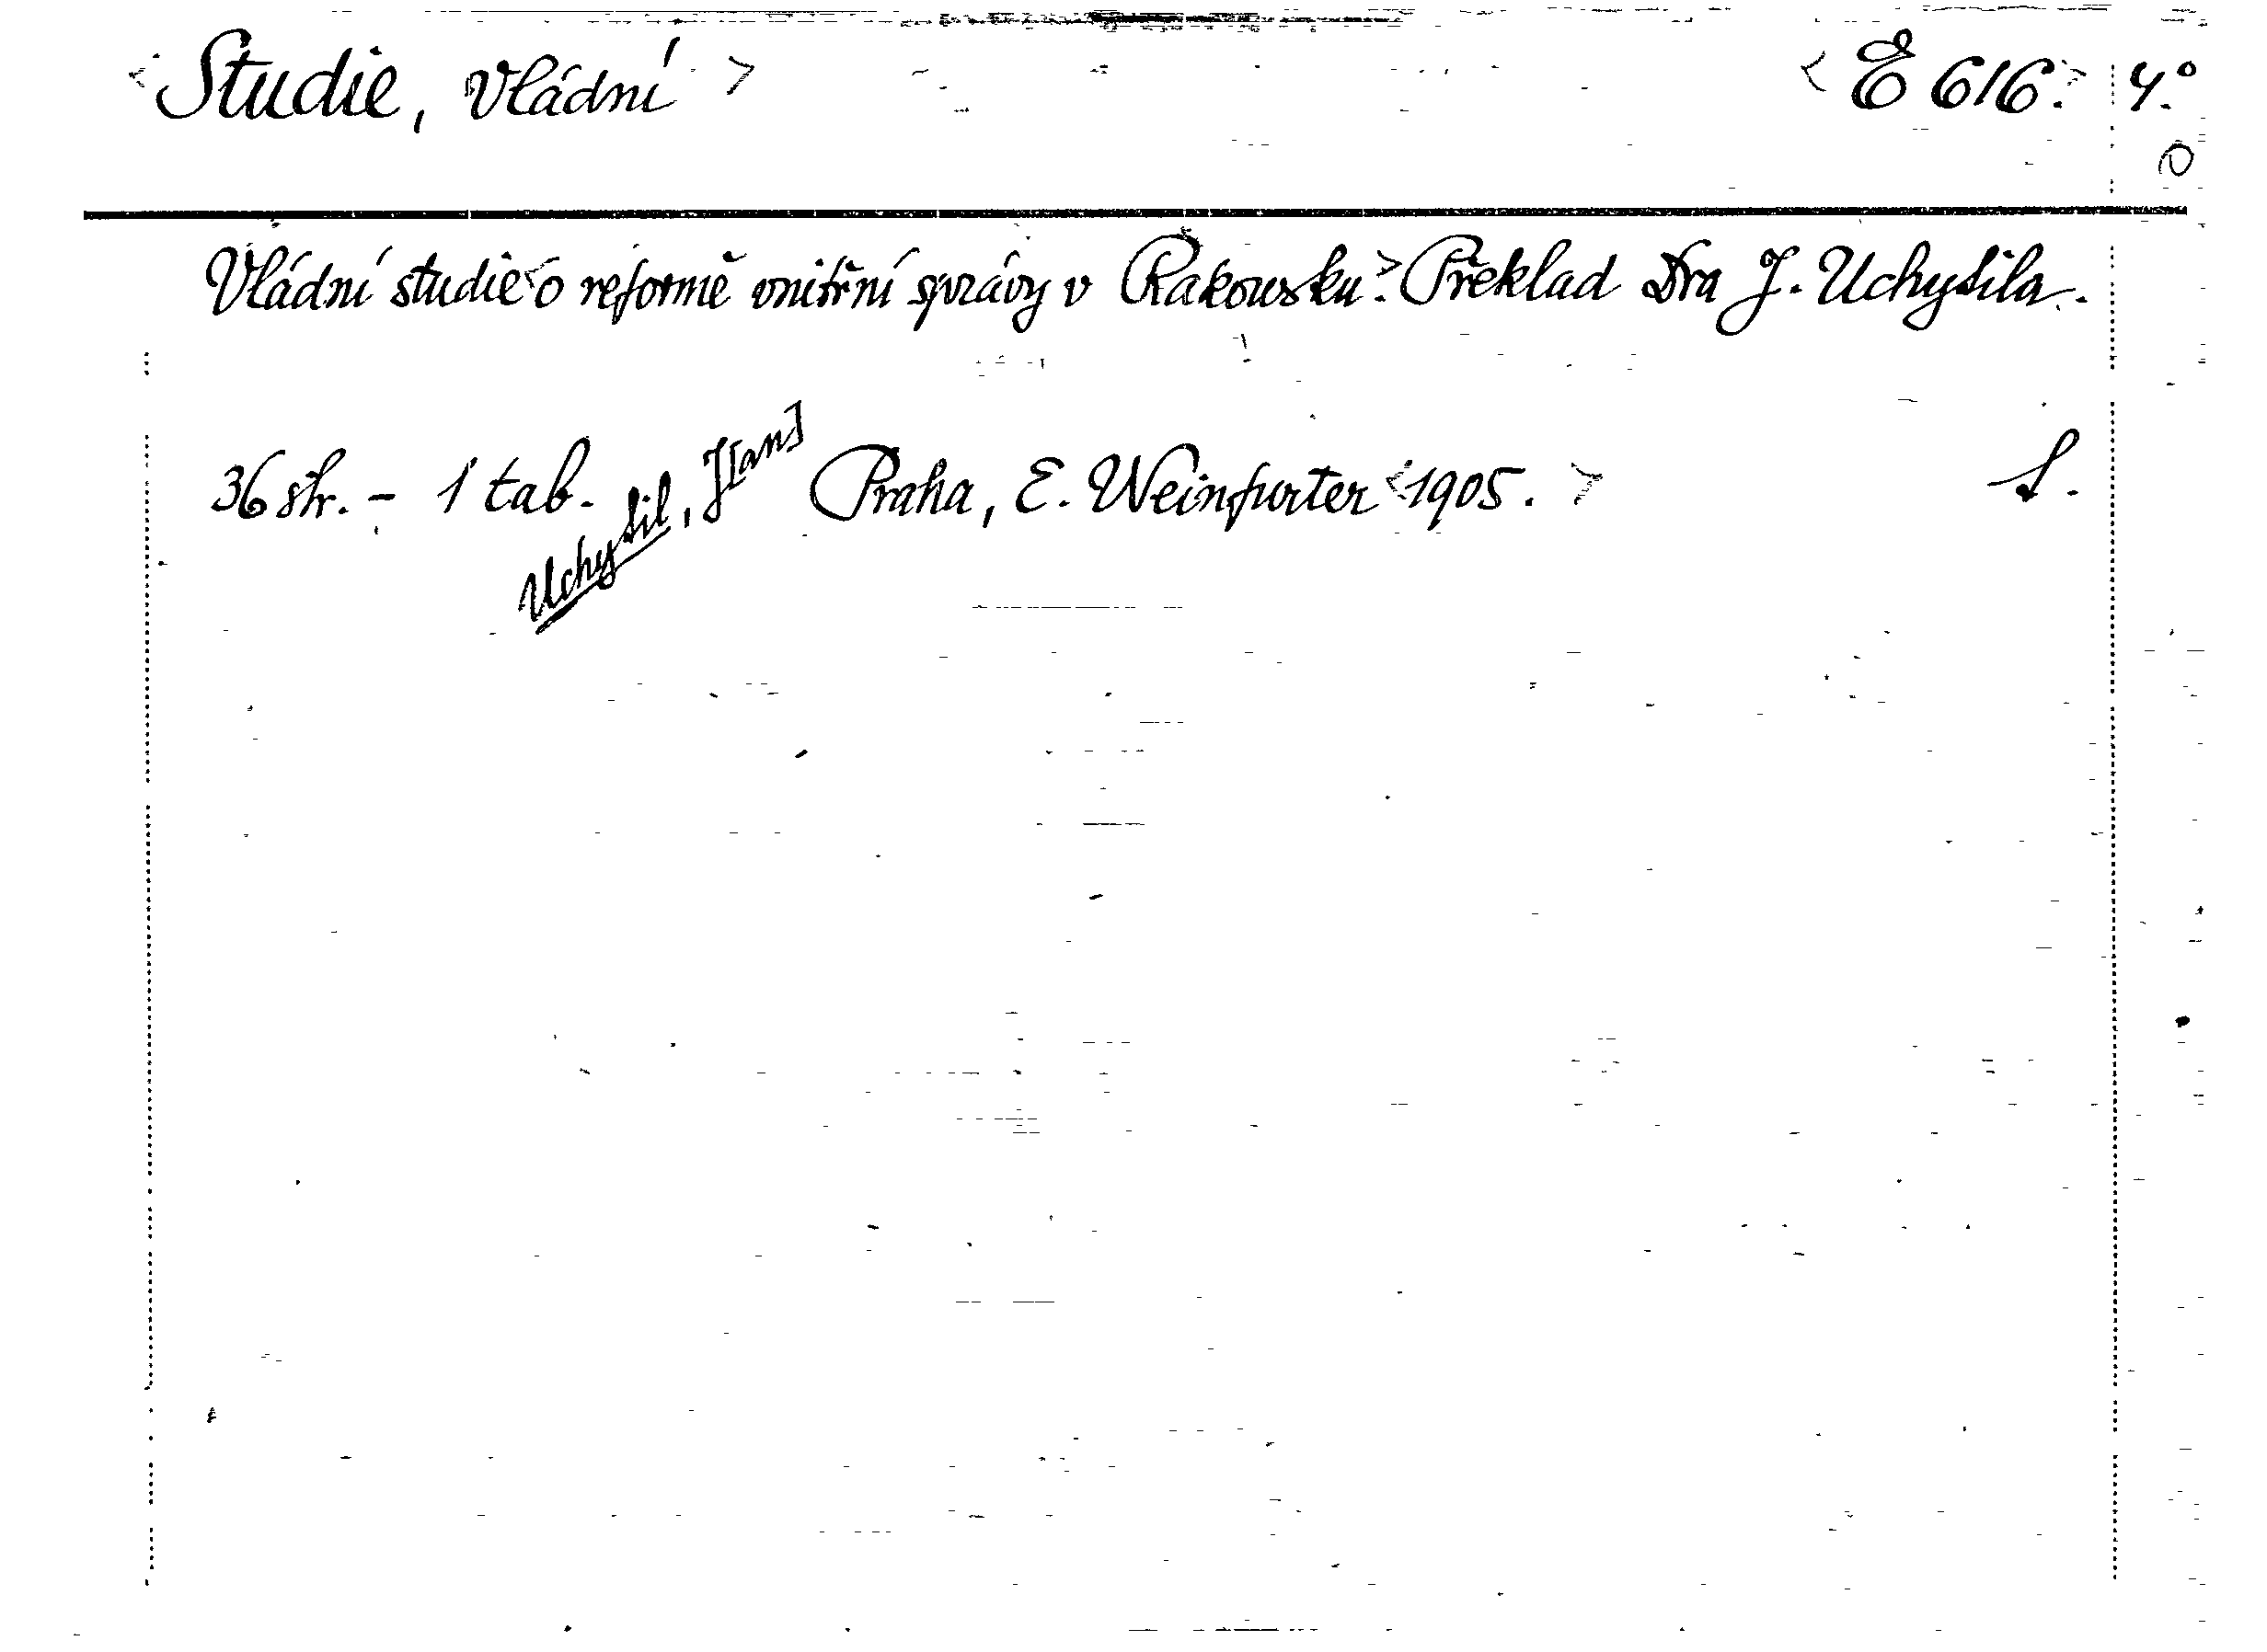 <Studie, vládní> <E 616.> 4.°
Vládní studie <o reformě vnitřní správy v Rakousku.> Překlad Dra J. Uchytila.
36 str. - 1 tab. Praha, E. Weinfurter <1905.> S.
Uchytil, J[an]